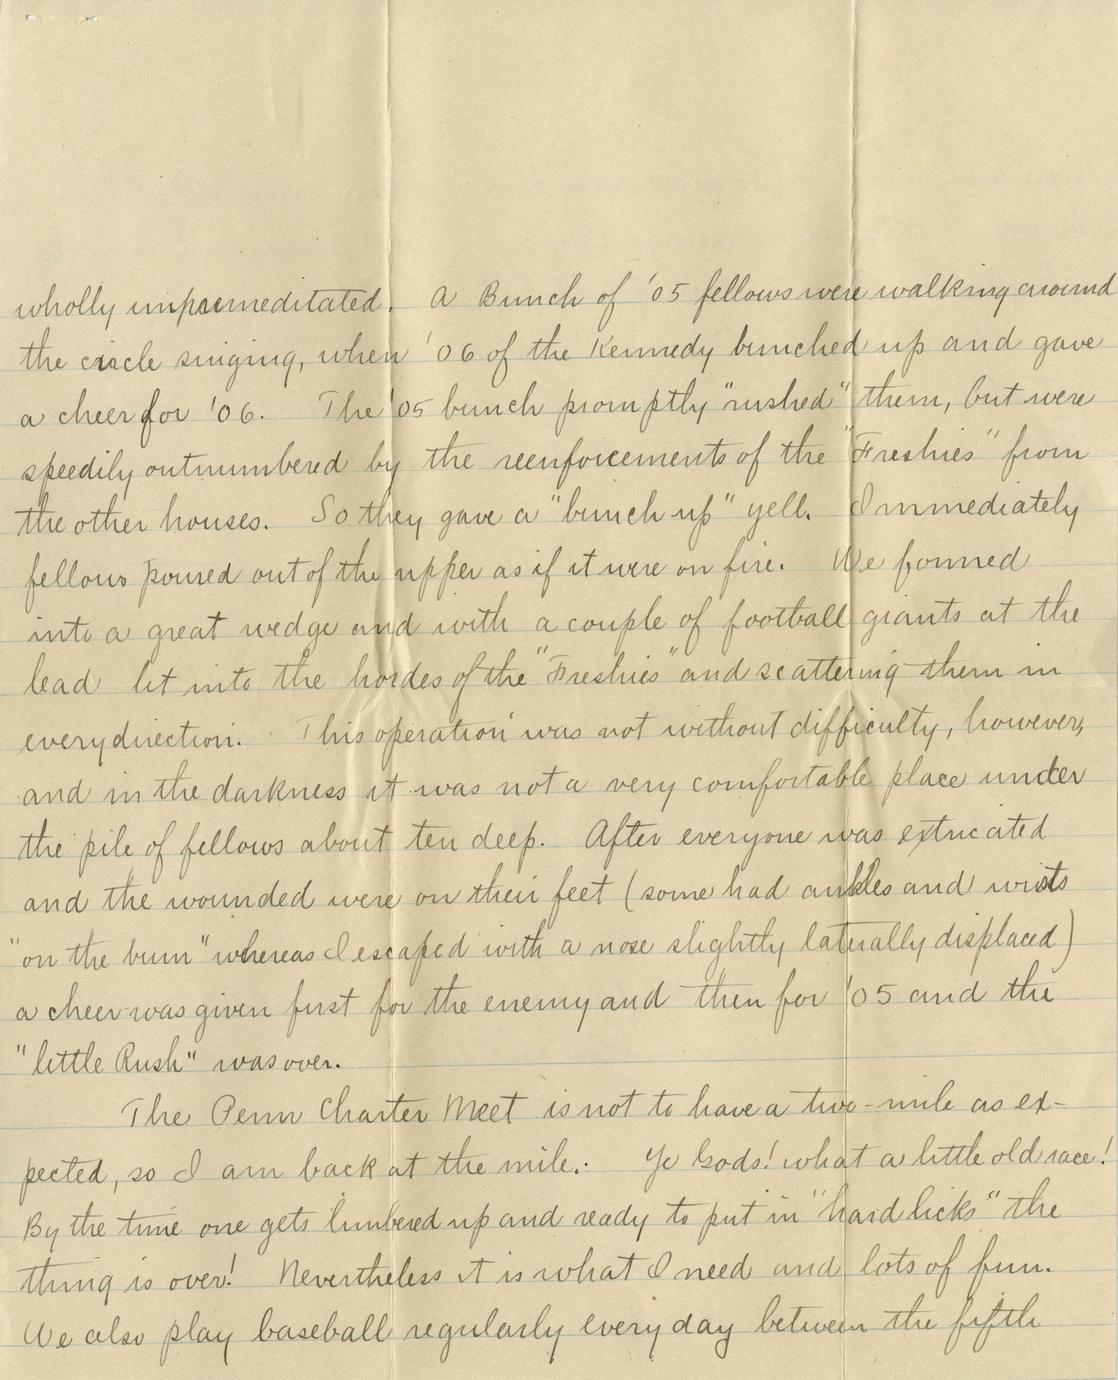 wholly unpremeditated. A Bunch of '05 fellows were walking around
the circle singing, when '06 of the Kennedy bunched up and gave
a cheer for '06. The '05 bunch promptly "rushed" them, but were
speedily outnumbered by the reenforcements of the "Freshies" from
the other houses. So they gave a "bunch up" yell. Immediately
fellows poured out of the upper as if it were on fire. We formed
into a great wedge and with a couple of football giants at the
lead lit into the hordes of the "Freshies" and scattering them in
every direction. This operation was not without difficulty, however,
and in the darkness it was not a very comfortable place under
the pile of fellows about ten deep. After everyone was extricated
and the wounded were on their feet (some had ankles and wrists
"on the bum" whereas I escaped with a nose slightly laterally displaced)
a cheer was given first for the enemy and then for '05 and the
"little Rush" was over.
The Penn Charter Meet is not to have a two-mile as ex-
pected, so I am back at the mile. Ye Gods! what a little old race!
By the time one gets limbered up and ready to put in "hard licks" the
thing is over! Nevertheless it is what I need and lots of fun.
We also play baseball regularly every day between the fifth